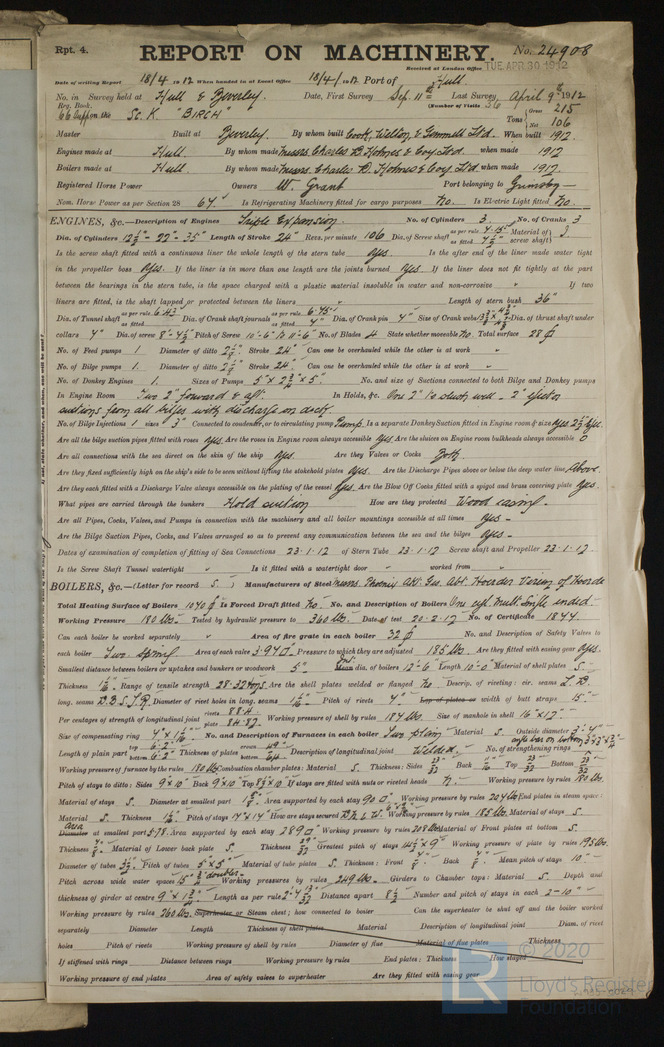 Rpt. 4.
REPORT ON MACHINERY. No. 24908
Received at London Office TUE. APR. 30 1912
Date of writing Report 18/4 1912 When handed in at Local Office 18/4/1912 Port of Hull
No. in Survey held at Hull & Beverley. Date, First Survey Sep. 11th Last Survey, April 9th 1912
Reg. Book. (Number of Visits 36
on the Sc. K "BIRCH" Tons Gross 215 Net 106
Master Built at Beverley. By whom built Cook, Welton & Gemmell Ltd. When built 1912.
Engines made at Hull. By whom made Messrs. Charles D. Holmes & Coy Ltd when made 1912
Boilers made at Hull. By whom made Messrs. Charles D. Holmes & Coy Ltd when made 1912.
Registered Horse Power Owners W. Grant Port belonging to Grimsby
Nom. Horse Power as per Section 28 67. Is Refrigerating Machinery fitted for cargo purposes No. Is Electric Light fitted No.
ENGINES, &c.—Description of Engines Triple Expansion. No. of Cylinders 3. No. of Cranks 3
Dia. of Cylinders 12½"- 22"- 35" Length of Stroke 24" Revs. per minute 106 Dia. of Screw shaft as per rule as fitted Material of screw shaft
Is the screw shaft fitted with a continuous liner the whole length of the stern tube yes. Is the after end of the liner made water tight
in the propeller boss yes. If the liner is in more than one length are the joints burned yes. If the liner does not fit tightly at the part
between the bearings in the stern tube, is the space charged with a plastic material insoluble in water and non-corrosive " If two
liners are fitted, is the shaft lapped or protected between the liners " Length of stern bush 36"
Dia. of Tunnel shaft as per rule as fitted Dia. of Crank shaft journals as per rule as fitted Dia. of Crank pin Size of Crank webs Dia. of thrust shaft under
collars Dia. of screw 8'-4½" Pitch of Screw 10'-6" to 11'-6" No. of Blades 4 State whether moveable No. Total surface 28
No. of Feed pumps 1. Diameter of ditto Stroke 24" Can one be overhauled while the other is at work "
No. of Bilge pumps 1. Diameter of ditto Stroke 24" Can one be overhauled while the other is at work "
No. of Donkey Engines 1. Sizes of Pumps No. and size of Suctions connected to both Bilge and Donkey pumps
In Engine Room Two 2" forward & aft. In Holds, &c. One 2" to slush well - 2" ejector
suctions from all bilges with discharge on deck.
No. of Bilge Injections 1 sizes 3" Connected to condenser, or to circulating pump Pump. Is a separate Donkey Suction fitted in Engine room & size yes 2½" Eje.
Are all the bilge suction pipes fitted with roses yes. Are the roses in Engine room always accessible yes Are the sluices on Engine room bulkheads always accessible
Are all connections with the sea direct on the skin of the ship yes. Are they Valves or Cocks Both.
Are they fixed sufficiently high on the ship's side to be seen without lifting the stokehold plates yes. Are the Discharge Pipes above or below the deep water line Above.
Are they each fitted with a Discharge Valve always accessible on the plating of the vessel yes. Are the Blow Off Cocks fitted with a spigot and brass covering plate yes.
What pipes are carried through the bunkers Hold suction How are they protected Wood casing.
Are all Pipes, Cocks, Valves, and Pumps in connection with the machinery and all boiler mountings accessible at all times yes
Are the Bilge Suction Pipes, Cocks, and Valves arranged so as to prevent any communication between the sea and the bilges yes
Dates of examination of completion of fitting of Sea Connections 23.1.12 of Stern Tube 23.1.12 Screw shaft and Propeller 23.1.12.
Is the Screw Shaft Tunnel watertight " Is it fitted with a watertight door " worked from "
BOILERS, &c.—(Letter for record S. ) Manufacturers of Steel Messrs. Phoenix Akt. Ges. Abt. Hoerder Verein of Hoerde
Total Heating Surface of Boilers 1040 Is Forced Draft fitted No. No. and Description of Boilers One cyl. mult. single ended.
Working Pressure 180 lbs. Tested by hydraulic pressure to 360 lbs. Date of test 20.2.12 No. of Certificate 1844.
Can each boiler be worked separately " Area of fire grate in each boiler 32 No. and Description of Safety Valves to
each boiler Two Spring Area of each valve Pressure to which they are adjusted 185 lbs. Are they fitted with easing gear yes.
Smallest distance between boilers or uptakes and bunkers or woodwork 5" Mean dia. of boilers 12'-6" Length 10'-0" Material of shell plates S.
Thickness Range of tensile strength 28-32 tons Are the shell plates welded or flanged No Descrip. of riveting: cir. seams L. D.
long. seams D.B.S.T.R. Diameter of rivet holes in long. seams Pitch of rivets Lap of plates or width of butt straps 15"
Per centages of strength of longitudinal joint rivets 88.4 plate 84.87. Working pressure of shell by rules 184 lbs Size of manhole in shell 16"x12"
Size of compensating ring No. and Description of Furnaces in each boiler Two plain Material S Outside diameter
Length of plain part top 6'-2" bottom 6'-2" Thickness of plates crown bottom Description of longitudinal joint Welded. No. of strengthening rings
Working pressure of furnace by the rules 180 lbs Combustion chamber plates: Material S. Thickness: Sides Back Top Bottom
Pitch of stays to ditto: Sides 9"x10" Back 9"x10" Top If stays are fitted with nuts or riveted heads N. Working pressure by rules 180 lbs.
Material of stays S. Diameter at smallest part Area supported by each stay 90 Working pressure by rules 204 lbs End plates in steam space:
Material S. Thickness Pitch of stays 17"x17" How are stays secured Working pressure by rules 185 lbs. Material of stays S.
Area Diameter at smallest part Area supported by each stay 289 Working pressure by rules 208 lbs Material of Front plates at bottom S.
Thickness Material of Lower back plate S. Thickness Greatest pitch of stays Working pressure of plate by rules 195 lbs.
Diameter of tubes 3½" Pitch of tubes 5"x5" Material of tube plates S. Thickness: Front Back Mean pitch of stays 10"
Pitch across wide water spaces Working pressures by rules 249 lbs. Girders to Chamber tops: Material S. Depth and
thickness of girder at centre Length as per rule Distance apart 8½ Number and pitch of stays in each 2-10"
Working pressure by rules 260 lbs. Superheater or Steam chest; how connected to boiler Can the superheater be shut off and the boiler worked
separately Diameter Length Thickness of shell plates Material Description of longitudinal joint Diam. of rivet
holes Pitch of rivets Working pressure of shell by rules Diameter of flue Material of flue plates Thickness
If stiffened with rings Distance between rings Working pressure by rules End plates: Thickness How stayed
Working pressure of end plates Area of safety valves to superheater Are they fitted with easing gear
© 2020
LR
Lloyd's Register
Foundation